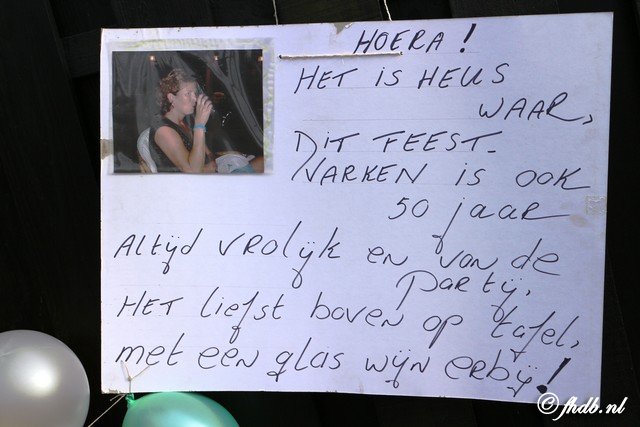 HOERA!
HET IS HEUS
WAAR,
DIT FEEST-
VARKEN IS OOK
50 jaar
Altijd vrolijk en van de
partij,
HET liefst boven op tafel,
met een glas wijn erbij!
© fhdb.nl